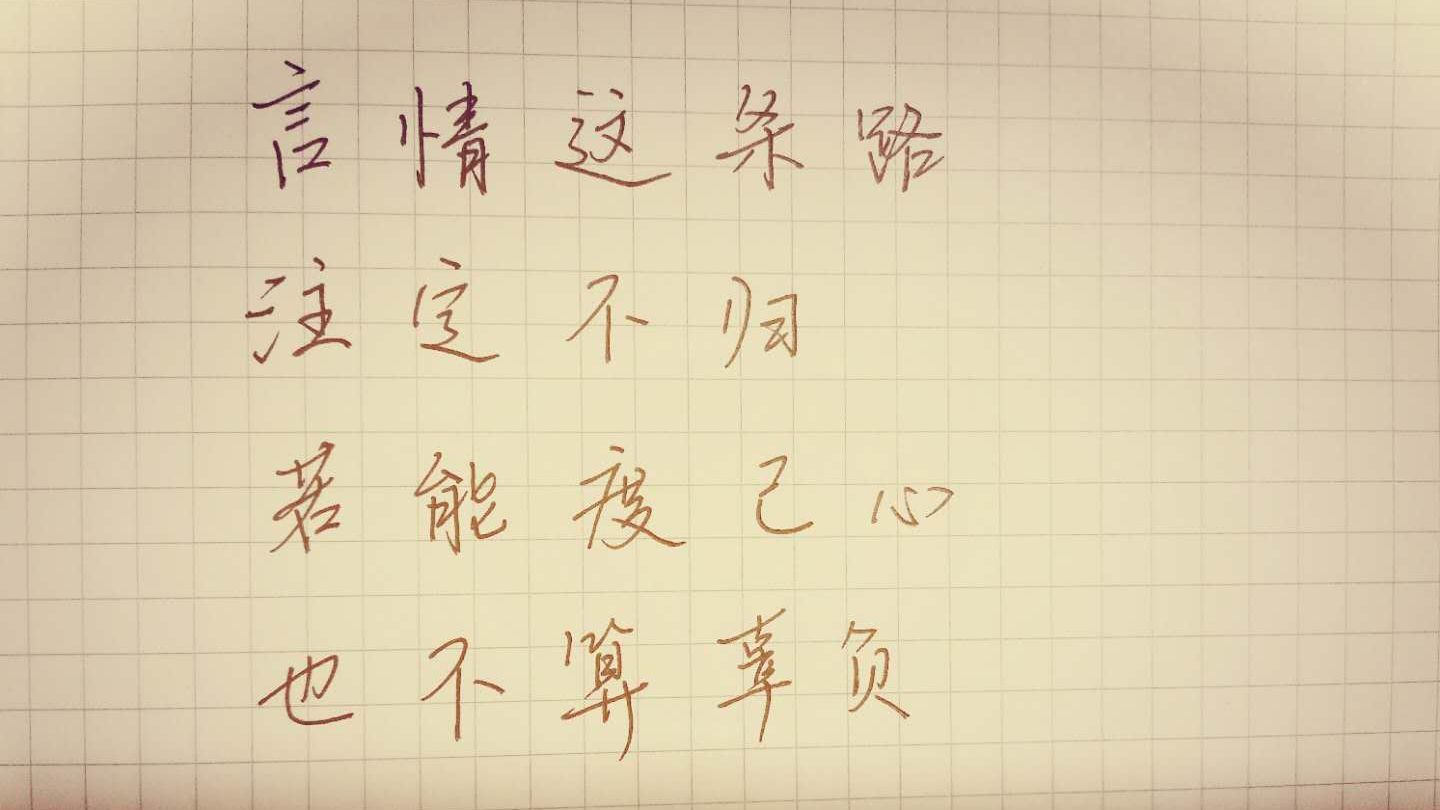 言情这条路
注定不归
若能度己心
也不算辜负